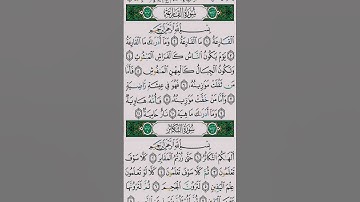 سُورَةُ القَارِعَةِ
بِسْمِ اللَّهِ الرَّحْمَٰنِ الرَّحِيمِ
الْقَارِعَةُ ۝ مَا الْقَارِعَةُ ۝ وَمَا أَدْرَاكَ مَا الْقَارِعَةُ
۝ يَوْمَ يَكُونُ النَّاسُ كَالْفَرَاشِ الْمَبْثُوثِ ۝
وَتَكُونُ الْجِبَالُ كَالْعِهْنِ الْمَنفُوشِ ۝ فَأَمَّا
مَن ثَقُلَتْ مَوَازِينُهُ ۝ فَهُوَ فِي عِيشَةٍ رَّاضِيَةٍ
۝ وَأَمَّا مَنْ خَفَّتْ مَوَازِينُهُ ۝ فَأُمُّهُ هَاوِيَةٌ
۝ وَمَا أَدْرَاكَ مَا هِيَهْ ۝ نَارٌ حَامِيَةٌ ۝
سُورَةُ التَّكَاثُرِ
بِسْمِ اللَّهِ الرَّحْمَٰنِ الرَّحِيمِ
أَلْهَاكُمُ التَّكَاثُرُ ۝ حَتَّىٰ زُرْتُمُ الْمَقَابِرَ ۝ كَلَّا سَوْفَ
تَعْلَمُونَ ۝ ثُمَّ كَلَّا سَوْفَ تَعْلَمُونَ ۝ كَلَّا لَوْ تَعْلَمُونَ
عِلْمَ الْيَقِينِ ۝ لَتَرَوُنَّ الْجَحِيمَ ۝ ثُمَّ لَتَرَوُنَّهَا